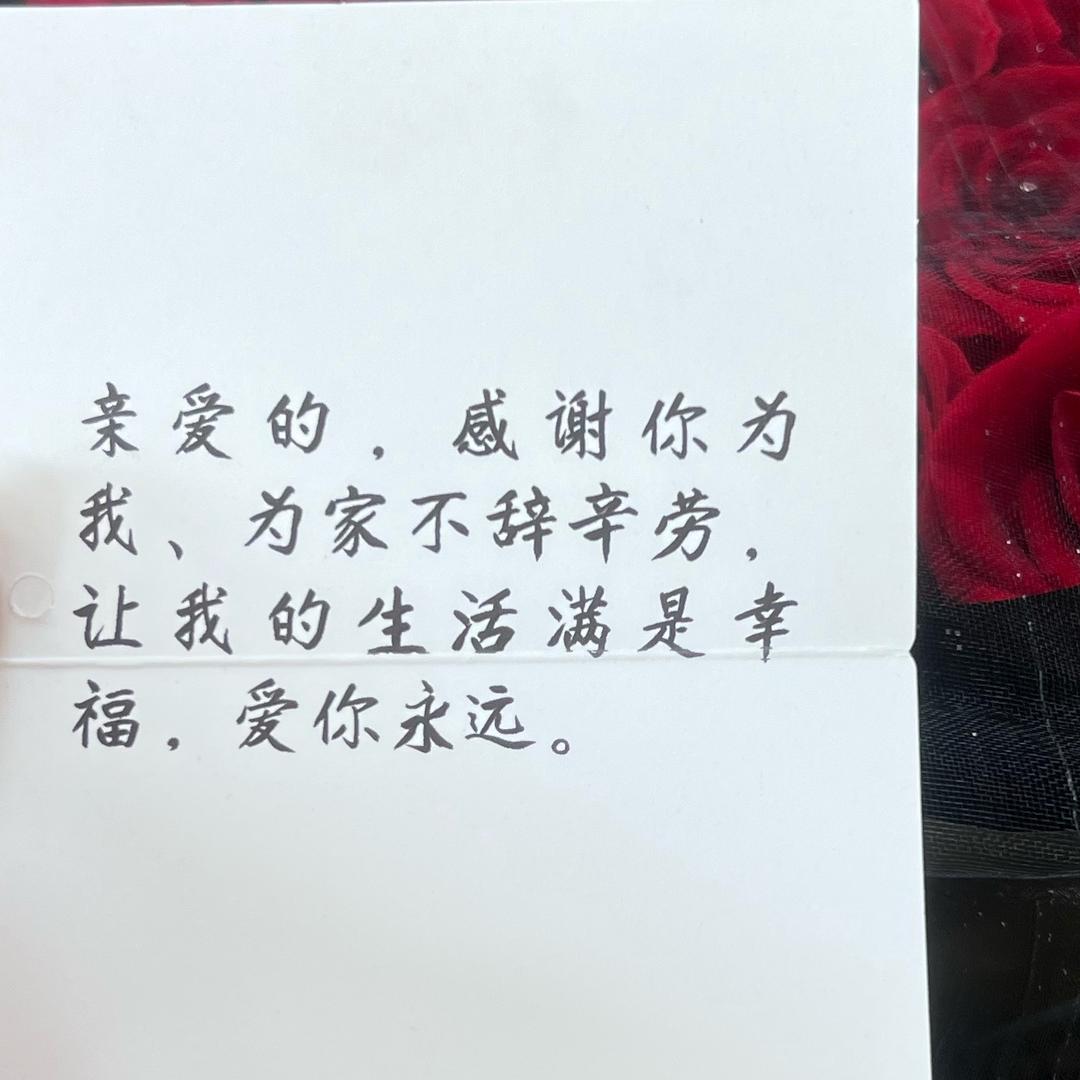 亲爱的，感谢你为
我、为家不辞辛劳，
让我的生活满是幸
福，爱你永远。